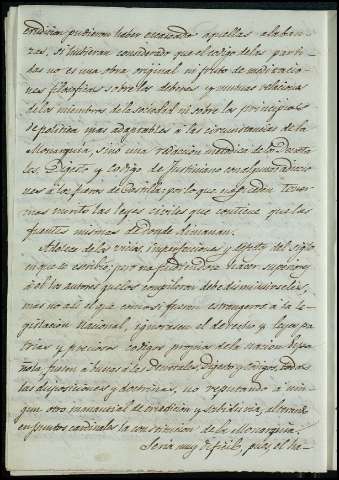 erudicion pudieron haber escaseado aquellas alaban-
zas, si hubieran considerado que el codigo de las parti-
das no es una obra original ni fruto de meditacio-
nes filosoficas sobre los deberes y mutuas relaciones
de los miembros de la sociedad ni sobre los principios
de politica mas adaptables à las circunstancias de la
Monarquia, sino una redaccion metodica de las Decreta-
les, Digesto y Codigo de Justiniano con algunas adicio-
nes à los fueros de Castilla; por lo que no pueden tener
mas merito las leyes civiles que contiene que las
fuentes mismas de donde dimanan.
Algunos de los vicios, imperfecciones y del siglo
en que se escribió, por no poderse hacer superiores
à él los autores que los compilaron debe disimularseles,
mas no asi el que como si fuesen estrangeros à la Le-
gislacion Nacional, ignorasen el derecho y leyes pa-
trias y preciosos codigos propios de la nacion Espa-
ñola, fuesen a buscar à las Decretales, Digesto y Codigo, todas
las disposiciones y doctrinas, no reputando à nin-
gun otro manantial de erudicion y sabiduria, alterando
en puntos cardinales la constitucion de la Monarquia.
Seria muy dificil, pues, el ha-